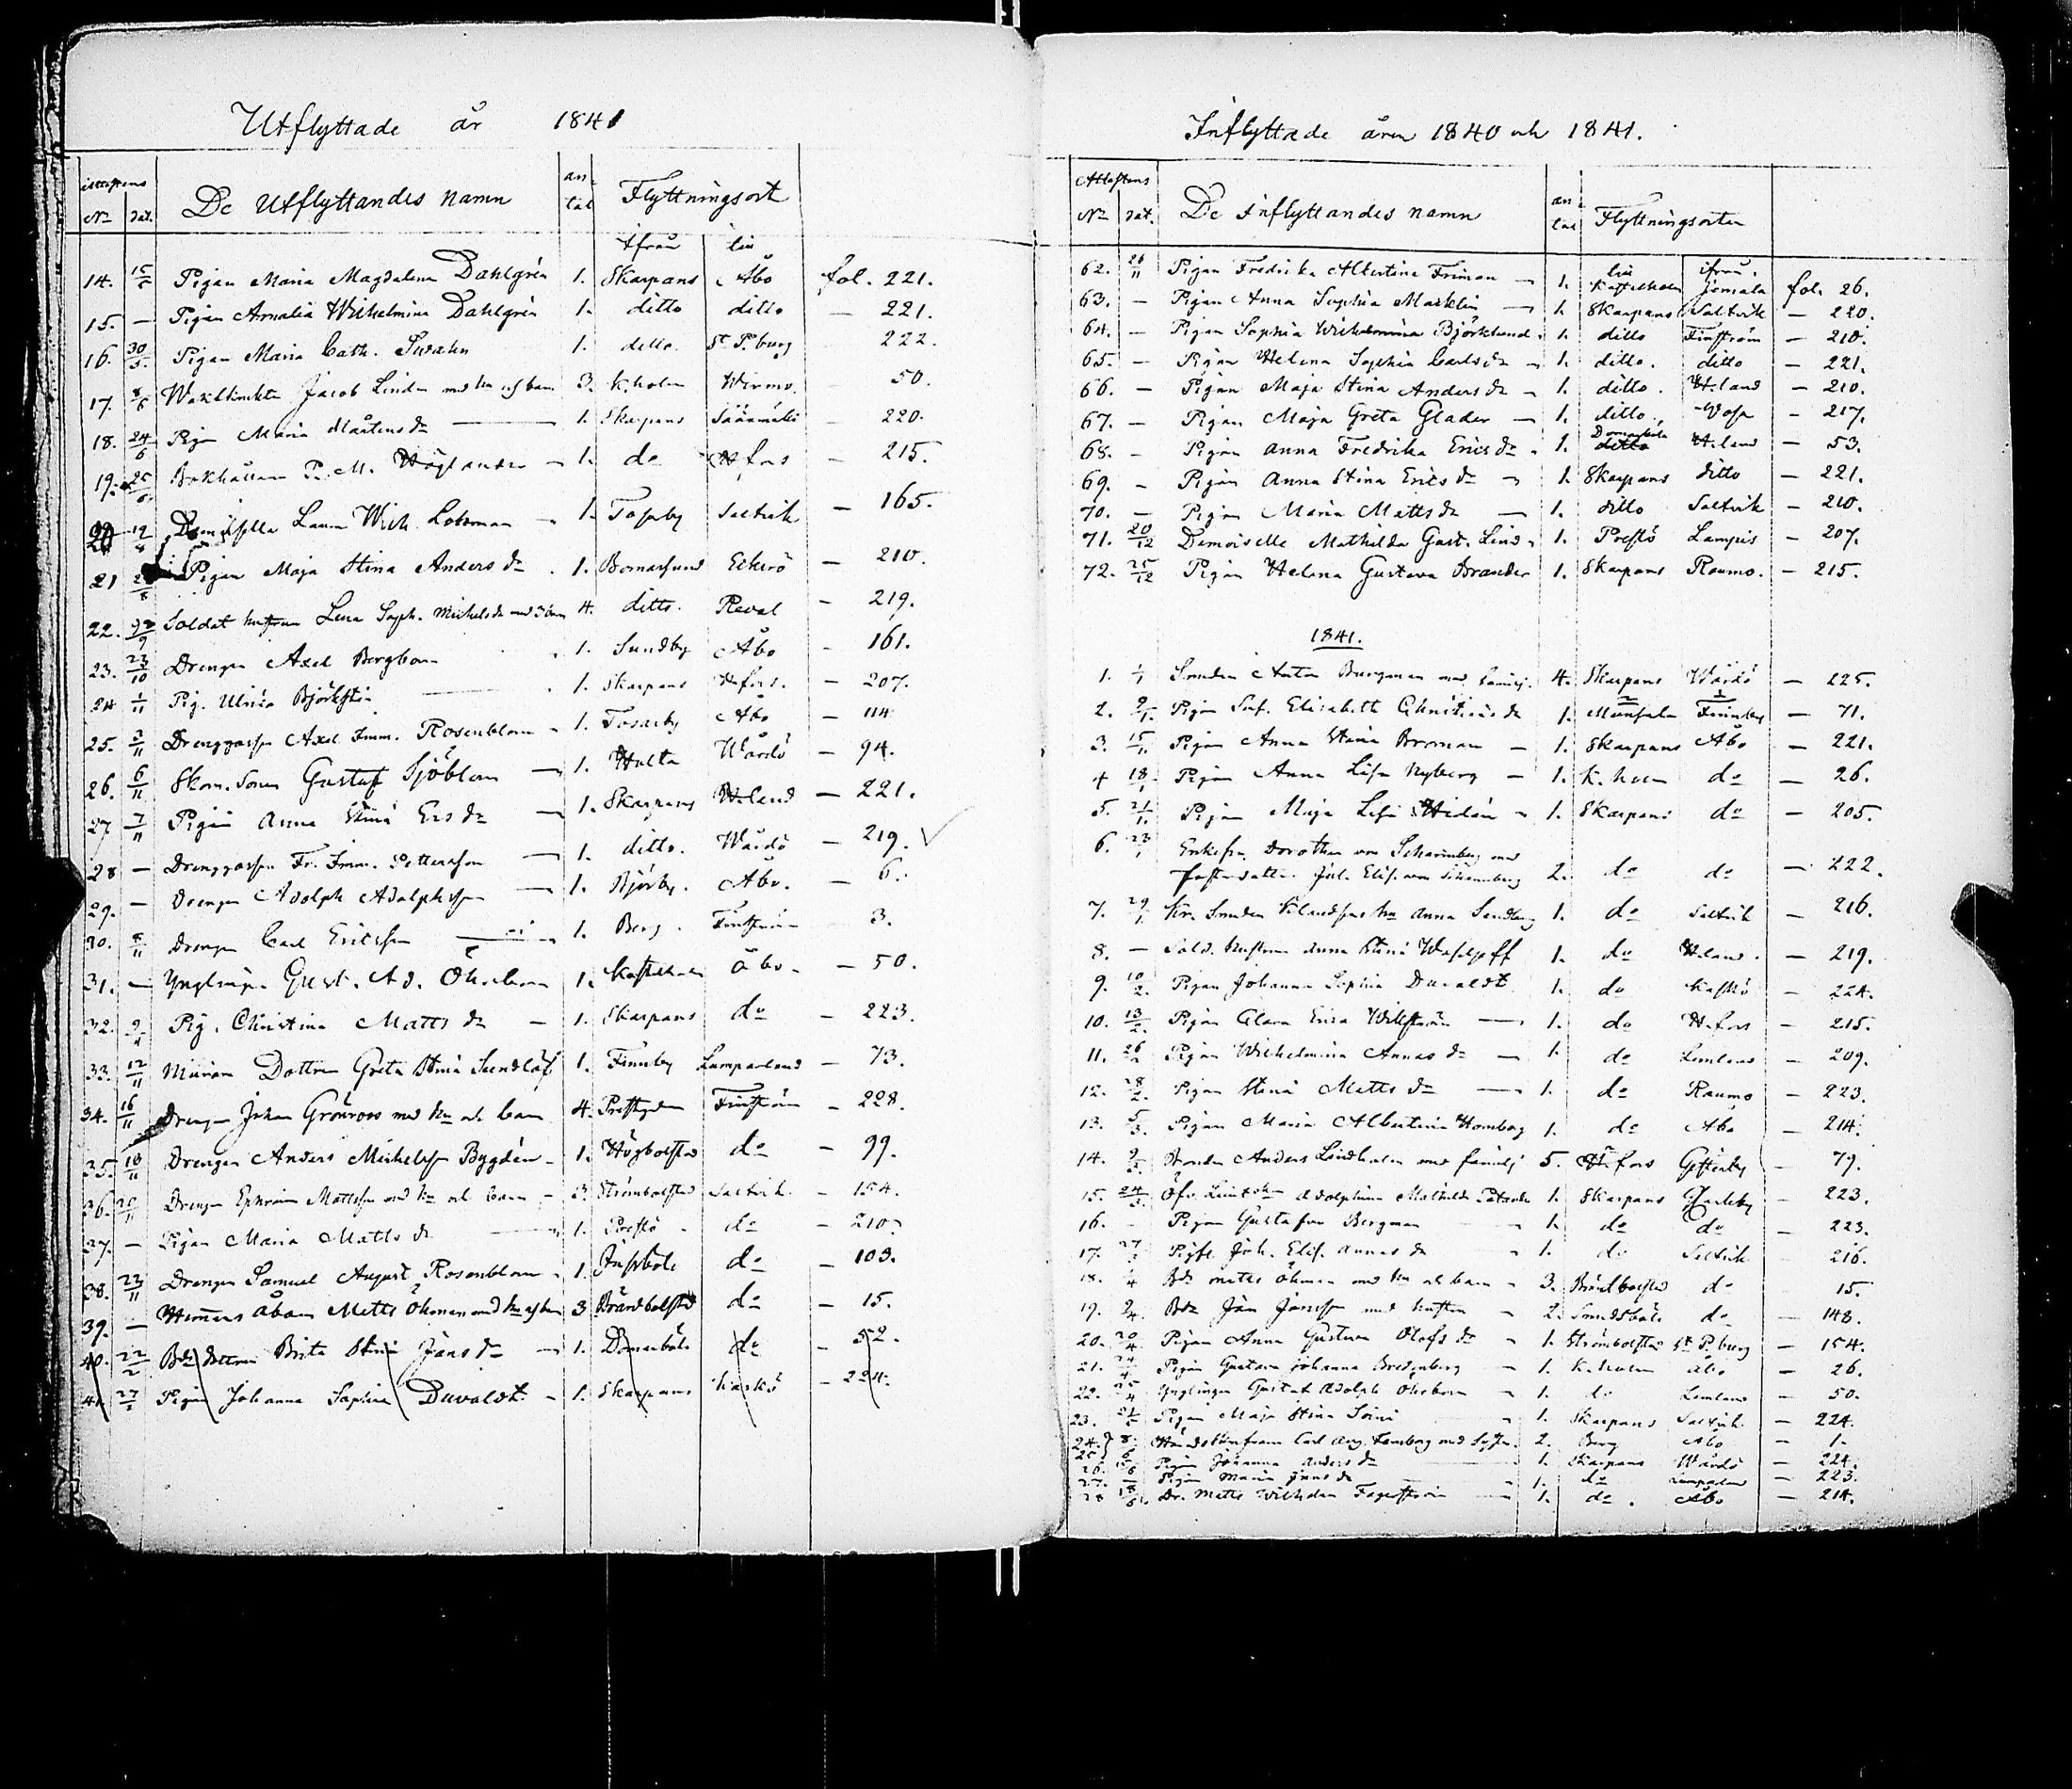 Utflyttade år 1841
Attestens
No dat. De Utflyttandes namn antal Flyttningsort
ifrån till
14. 15/5 Pigan Maria Magdalena Dahlgrén 1. Skarpans Åbo fol. 221.
15. — Pigan Amalia Wilhelmina Dahlgrén 1. ditto ditto — 221.
16. 30/5. Pigan Maria Cath. Swahn 1. ditto St P.burg — 222.
17. 8/6 Jacob Linden med hu och barn 3. K.holm Wirmo — 50.
18. 24/6 Pigan Maria Mårtens dr 1. Skarpans Säämäki — 220.
19. 25/6. Bokhållare P. M. Höglander 1. do H.fors — 215.
20 Demoiselle Laura Wilh. Lotsman 1. Tosarby Saltvik — 165.
21 Pigan Maja Stina Anders dr 1. Bomarsund Eckerö — 210.
22. Soldat hustrun Lena Soph. Michels dr med 3 barn 4. ditto. Reval — 219.
23. 23/10 Drengen Axel Bergbom 1. Sundby Åbo — 161.
24 1/11 Pig. Ulrica Björksten 1. Skarpans H.fors. — 207.
25. 3/11 Drenggossen Axel Imm. Rosenblom 1. Tosarby Åbo — 114
26. 6/11 Skom. Sonen Gustaf Sjöblom 1. Hulta Wårdö — 94.
27 7/11 Pigan Anna Stina Ers dr 1. Skarpans H.land — 221.
28 — Drenggossen Fr. Imm. Pettersson 1. ditto. Wårdö — 219. ✓
29. — Drengen Adolph Adolphsson 1. Björby. Åbo. — 6.
30. 8/11 Drengen Carl Ericsson 1. Berg. Finström 3.
31. — Ynglingen Gust. Ad. Öhrbom 1. Kastelholm Åbo. — 50.
32. 9/11 Pig. Christina Matts dr — 1. Skarpans do — 223.
33. 12/11 Dottren Greta Stina Sundlöf 1. Finnby Lumparland — 73.
34. 16/11 Drengen Johan Grönroos med hu och barn 4. Prestgården Finström — 228.
35. 18/11 Drengen Anders Michelsson Bygdén 1. Högbolstad do — 99.
36. 20/11 Drengen Ephraim Mattsson med hu och barn 3. Strömbolstad Saltvik — 154.
37. — Pigan Maria Matts dr 1. Prestö do — 210
38. 23/11 Drengen Samuel August Rosenblom 1. Jussböle do — 103.
39. — Åboen Matts Öhman med hu och barn 3 Brändbolstad do — 15.
40. 22/2 Bde dottren Brita Stina Jans dr 1. Domarböle do — 52.
41. Pigan Johanna Sophia Duvaldt 1. Skarpans Kaskö — 224.
Inflyttade åren 1840 och 1841.
Attestens
No dat. De Inflyttandes namn antal Flyttningsorten
till ifrån.
62. 26/11 Pigan Fredrika Albertina Friman 1. Kastelholm Jomala fol. 26.
63. — Pigan Anna Sophia Marklin 1. Skarpans Saltvik — 220.
64. — Pigan Sophia Wilhelmina Björklund 1. ditto Finström — 210.
65. — Pigan Helena Sophia Carls dr 1. ditto. ditto — 221.
66. — Pigan Maja Stina Anders dr 1. ditto. H.land — 210.
67. — Pigan Maja Greta Glader 1. ditto. Wasa — 217.
68. — Pigan Anna Fredrika Erics dr 1. Domarböle ditto H.land — 53.
69. — Pigan Anna Stina Erics dr 1. Skarpans ditto — 221.
70. — Pigan Maria Matts dr 1. ditto Saltvik — 210.
71. 20/12 Demoiselle Mathilda Gust. Lind 1. Prestö Lampis — 207.
72. 25/12 Pigan Helena Gustava Brander 1. Skarpans Raumo. — 215.
1841.
1. 1/1 Smeden Anton Burgman med familj. 4. Skarpans Wårdö — 225.
2. Pigan Elisabeth 1. Finnby — 71.
3. 15/1 Pigan Anna Stina Broman 1. Skarpans Åbo — 221.
4 18/1 Pigan Anna Lisa Nyberg 1. K.holm do — 26.
5. 21/1 Pigan Maja Lisa Widén 1. Skarpans do — 205.
6. 23/1 Enkefru Dorothea von Scharenberg med
fosterdotter Joh. Elis. von Scharenberg 2. do do — 222.
7. 29/1 Smeden hu Anna Sandberg 1. do Saltvik — 216.
8. — Sold. hustrun Anna Stina 1. do H.land. — 219.
9. 10/2. Pigan Johanna Sophia Duvaldt 1. do Kaskö — 224.
10. 13/2. Pigan Clara Erica Willström 1. do H.fors — 215.
11. 26/2 Pigan Wilhelmina Annas dr 1. do Lemland — 209.
12. 28/2. Pigan Stina Matts dr 1. do Raumo — 223.
13. 5/3. Pigan Maria Albertina Homborg 1. do Åbo — 214.
14. 9/3 Anders Lindholm med familj 5. H.fors Gesterby — 79.
15. 24/3. Adolphina Mathilda 1. Skarpans — 223.
16. — Pigan Gustafva Bergman 1. do do — 223.
17. 27/3 Joh. Elis. Annas dr 1. do Saltvik — 216.
18. Bde Matts Öhman med hu och barn 3. Brändbolstad do — 15.
19. 2/4. Bde Jan Jansson med hustru 2. Smedsböle do — 148.
20. 20/4 Pigan Anna Gustava Olofs dr 1. Strömbolstad St P.burg — 154.
21. 24/4 Pigan Gustava Johanna Bredenberg 1. K.holm Åbo — 26.
22. 25/4 Ynglingen Gustaf Adolph Öhrbom 1. do Lemland — 50.
23. Pigan Maja Stina 1. Skarpans Saltvik — 224.
24. 25. Carl Aug. med Syster 2. Berg Åbo — 1.
26. Pigan Johanna Anders dr 1. Skarpans Wårdö — 224.
27. — Pigan Maria Jans dr 1. do Lumparland — 223.
28 18/6. Dr. Matts Wilhelm Fagerström 1. do. Åbo — 214.